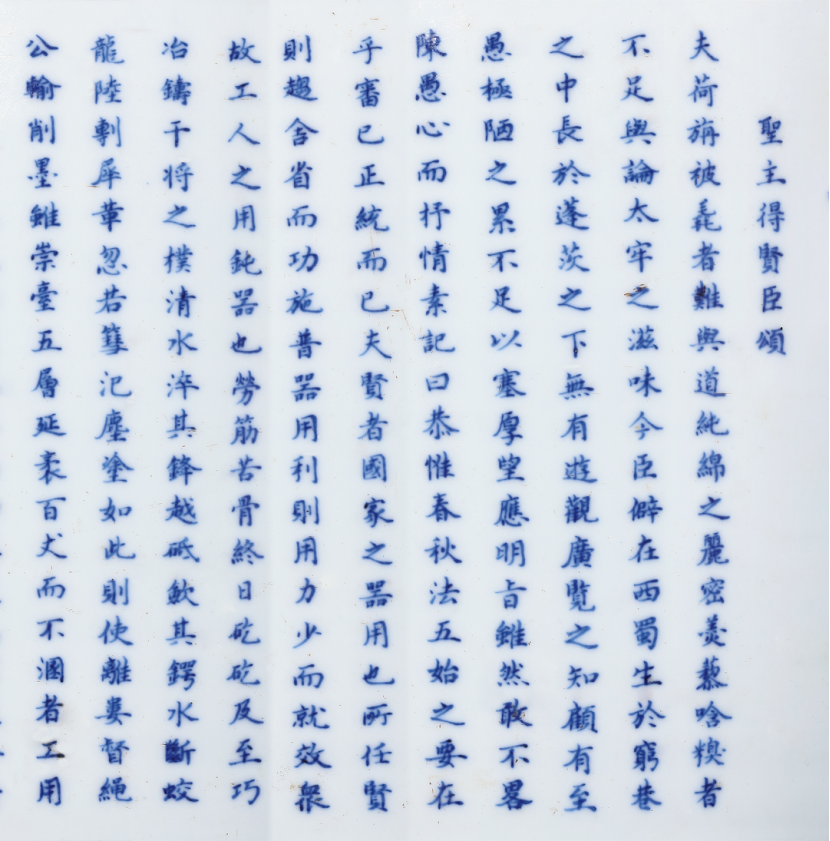 聖主得賢臣頌
夫荷旃被毳者難與道純綿之麗密羮藜唅糗者
不足與論太牢之滋味今臣僻在西蜀生於窮巷
之中長於蓬茨之下無有遊觀廣覽之知顧有至
愚極陋之累不足以塞厚望應明旨雖然敢不畧
陳愚心而抒情素記曰恭惟春秋法五始之要在
乎審已正統而已夫賢者國家之器用也所任賢
則趨舍省而功施普器用利則用力少而就效衆
故工人之用鈍器也勞筋苦骨終日矻矻及至巧
冶鑄干將之樸清水淬其鋒越砥歛其鍔水斷蛟
龍陸剸犀革忽若篲汜塵塗如此則使離婁督繩
公輸削墨雖崇臺五層延袤百丈而不溷者工用